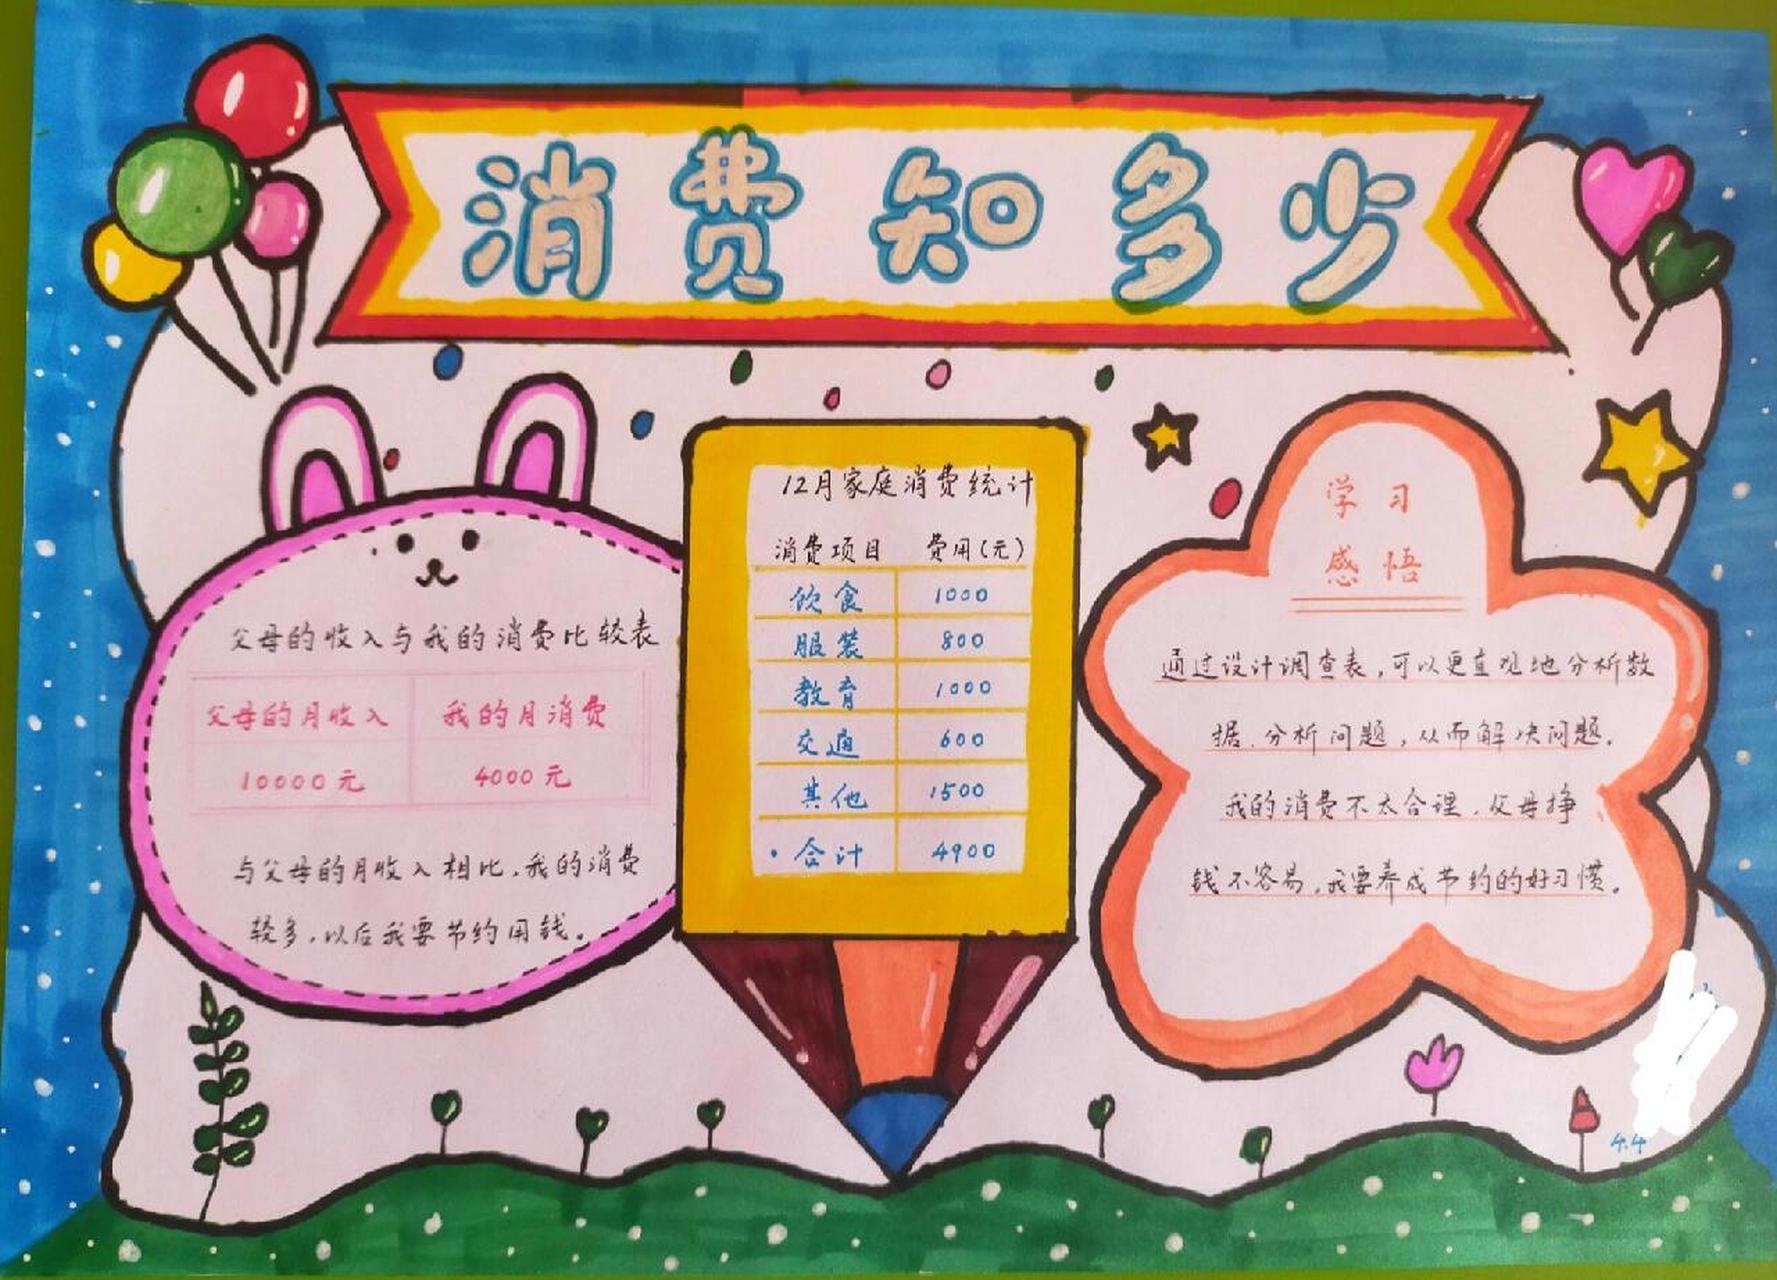 消费知多少
父母的收入与我的消费比较表
父母的月收入 我的月消费
10000元 4000元
与父母的月收入相比,我的消费
较多,以后我要节约用钱。
12月家庭消费统计
消费项目 费用(元)
饮食 1000
服装 800
教育 1000
交通 600
其他 1500
·合计 4900
学习
感悟
通过设计调查表,可以更直观地分析数
据.分析问题,从而解决问题.
我的消费不太合理.父母挣
钱不容易,我要养成节约的好习惯。
4.4